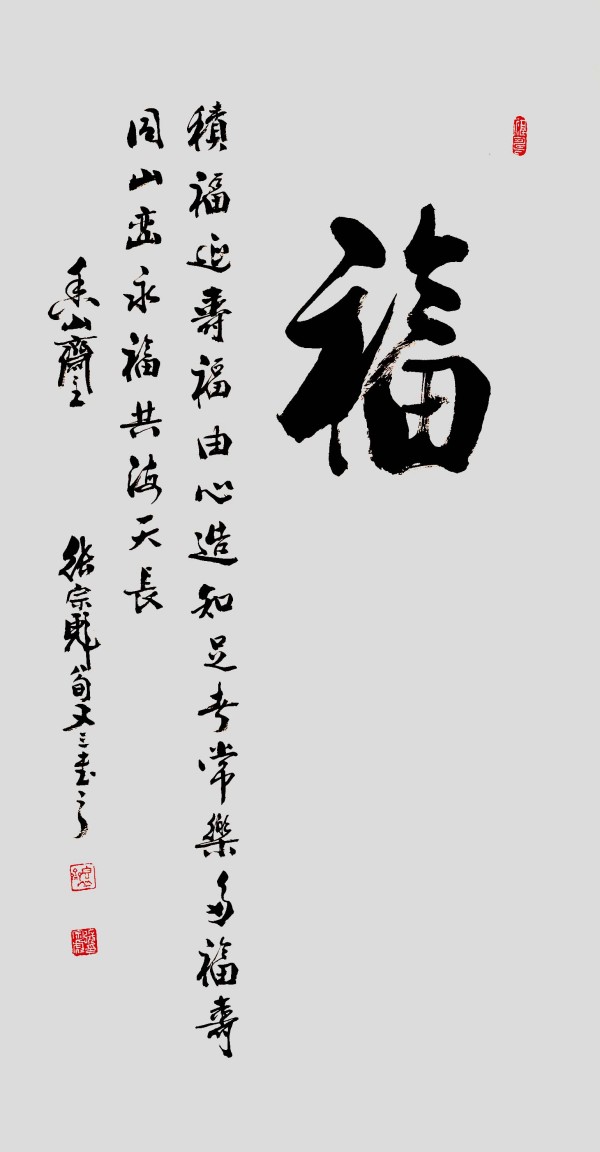 福
積福延壽福由心造知足者常樂多福壽
同山巒永福共海天長
香山齋主
張宗彪旬又三書